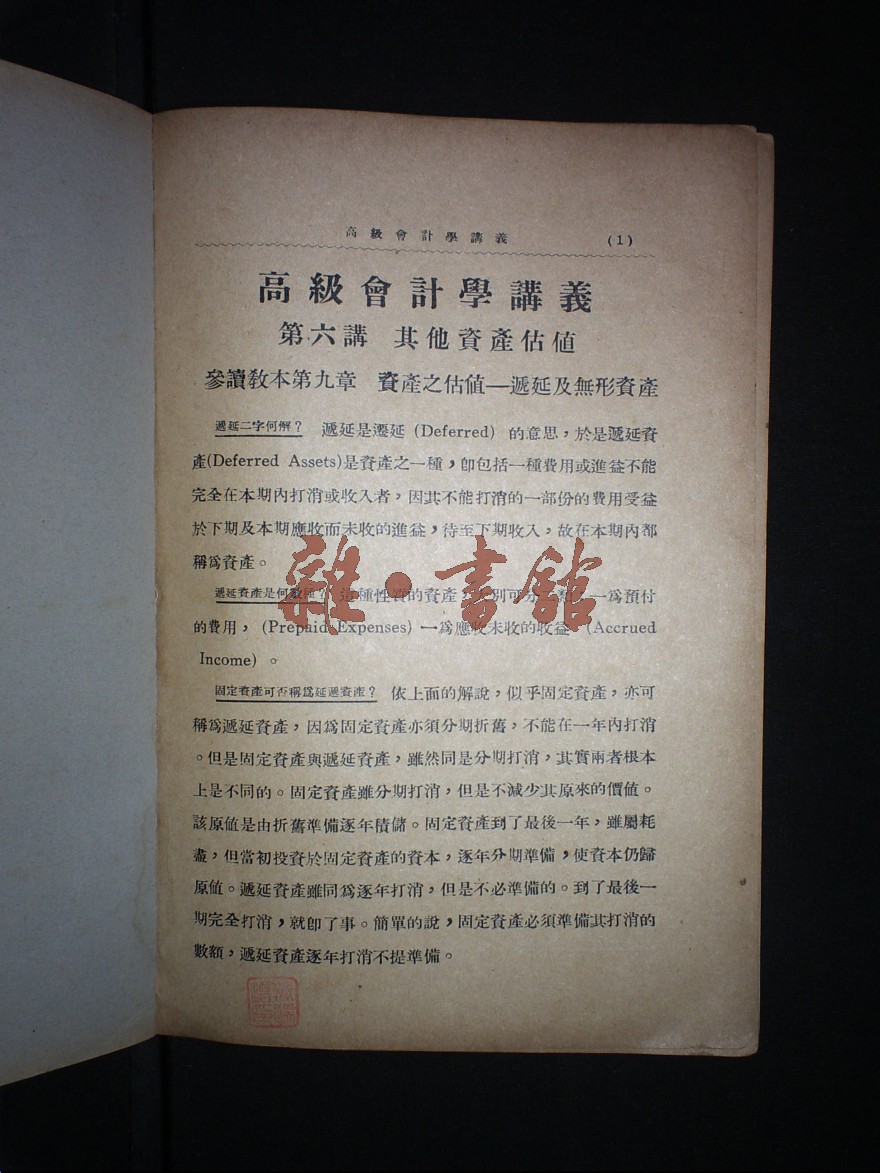 高級會計學講義 (1)
高級會計學講義
第六講 其他資產估値
參讀敎本第九章 資產之估値—遞延及無形資產
遞延二字何解？ 遞延是遷延 (Deferred) 的意思，於是遞延資
產(Deferred Assets)是資產之一種，卽包括一種費用或進益不能
完全在本期內打消或收入者，因其不能打消的一部份的費用受益
於下期及本期應收而未收的進益，待至下期收入，故在本期內都
稱爲資產。
遞延資產是何數種？ 這種性質的資產，分別可分 一爲預付
的費用， (Prepaid Expenses) 一爲應收未收的收益 (Accrued
Income) 。
固定資產可否稱爲延遞資產？ 依上面的解說，似乎固定資產，亦可
稱爲遞延資產，因爲固定資產亦須分期折舊，不能在一年內打消
。但是固定資產與遞延資產，雖然同是分期打消，其實兩者根本
上是不同的。固定資產雖分期打消，但是不減少其原來的價値。
該原値是由折舊準備逐年積儲。固定資產到了最後一年，雖屬耗
盡，但當初投資於固定資產的資本，逐年分期準備，使資本仍歸
原値。遞延資產雖同爲逐年打消，但是不必準備的。到了最後一
期完全打消，就卽了事。簡單的說，固定資產必須準備其打消的
數額，遞延資產逐年打消不提準備。
雜·書館